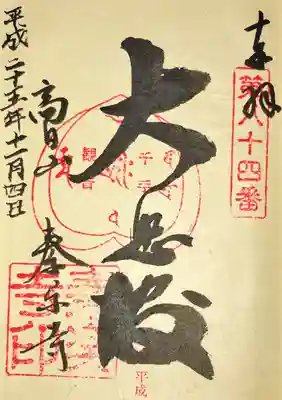 奉拝
第八十四番
大悲殿
千手
観音
高日山
秦楽寺
平成二十五年十一月四日
平成